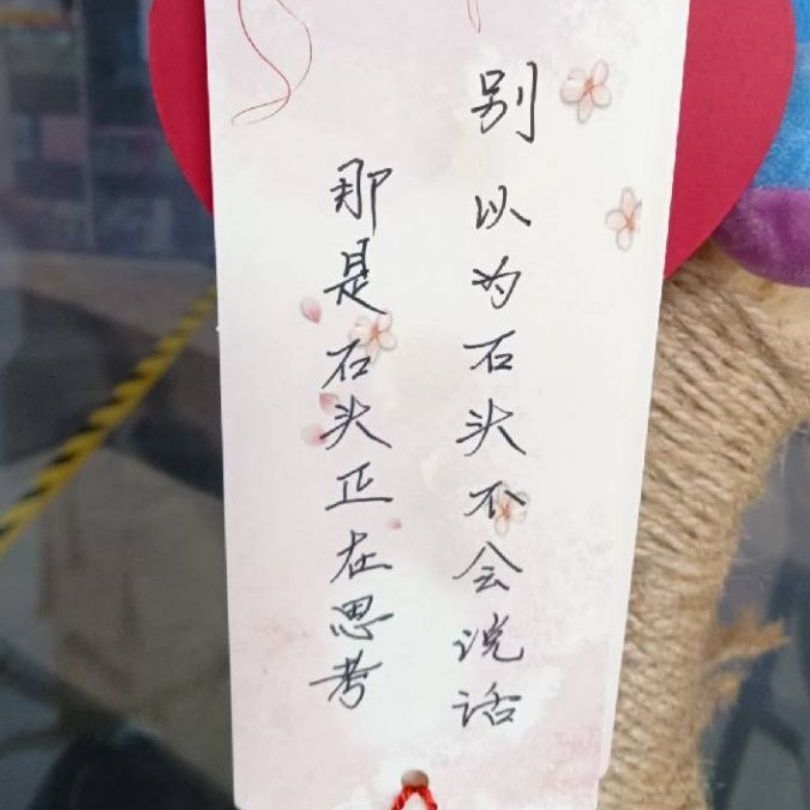 别以为石头不会说话
那是石头正在思考